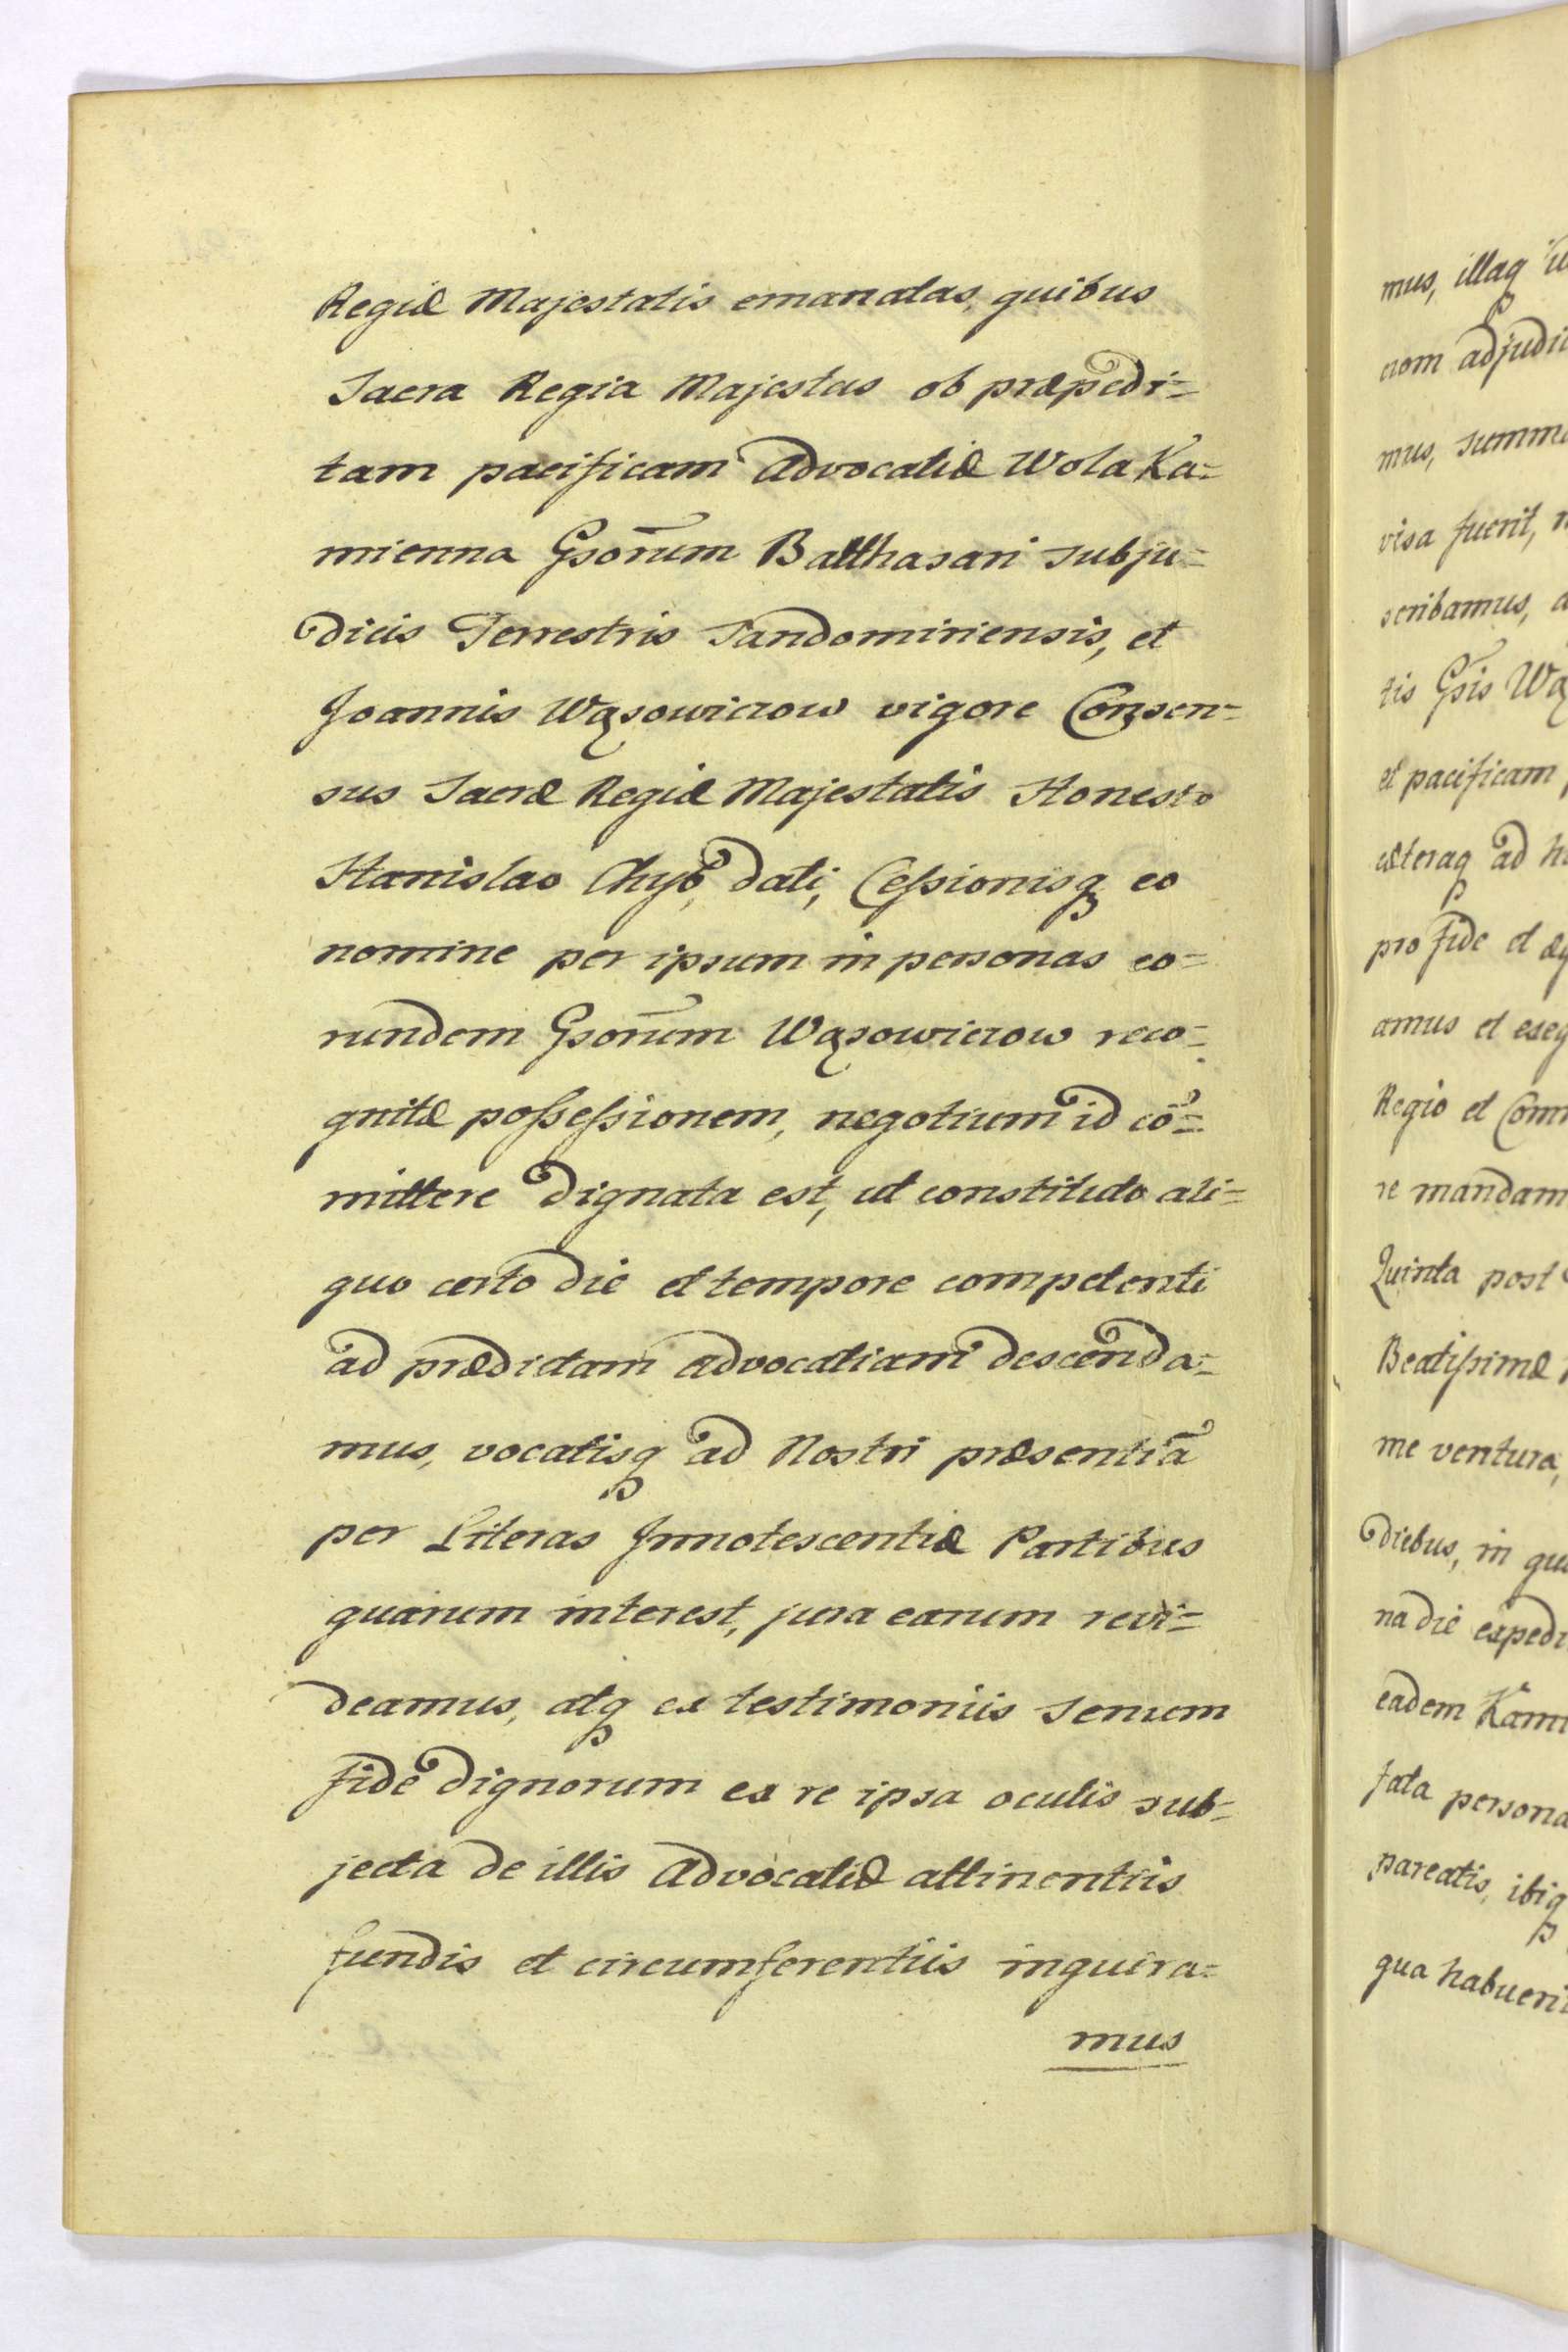 Regiæ Majestatis emanatas, quibus
Sacra Regia Majestas ob præpedi=
tam pacificam Advocatiæ Wola Ka=
mienna Gsorum̃ Balthasari Subju=
dicis Terrestris Sandomiriensis, et
Joannis Wąsowiczow vigore Consen=
sus Sacræ Regiæ Majestatis Honesto
Stanislao Chyb, dati, Cessionisq eo
nomine per ipsum in personas eo=
rundem Gsorum̃ Wąsowiczow reco=
gnitæ possessionem, negotium id cõ=
mittere dignata est, ut constituto ali=
quo certo die et tempore competenti
ad prædictam advocatiam descenda=
mus, vocatisq ad Nostri præsentiã
per Literas Innotescentiæ Partibus
quarum interest, jura earum revi=
deamus, atq ex testimoniis Senum
fide dignorum ex re ipsa oculis sub=
jecta de illis Advocatiæ attinentiis
fundis et circumferentiis inquira=
mus
mus, illaq
nom adjudi
mus, summ
visa fuerit,
scribamus,
tis Gsis Wą
et pacificam
cæteraq ad
pro fide et æq
amus et exeq
Regio et Com
re mandam
Quinta post
Beatissimæ
me ventura,
diebus, in qu
na die expedi
eadem Kami
fata persona
pareatis, ibiq
qua habueri